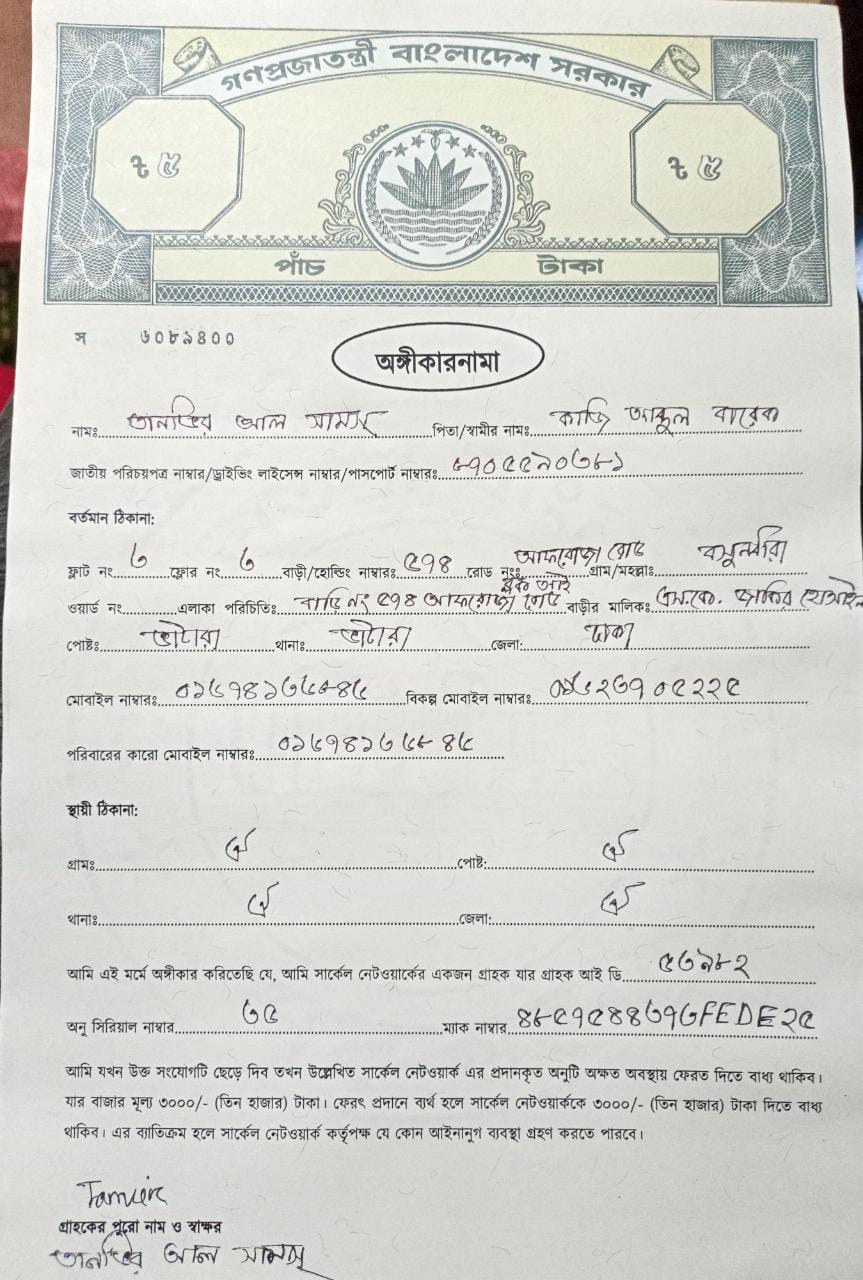 গণপ্রজাতন্ত্রী বাংলাদেশ সরকার
৳ ৫ ৳ ৫
পাঁচ টাকা
স ৬০৮৯৪০০
অঙ্গীকারনামা
নামঃ তানভির আল সামস্ পিতা/স্বামীর নামঃ কাজি আব্দুল বারেক
জাতীয় পরিচয়পত্র নাম্বার/ড্রাইভিং লাইসেন্স নাম্বার/পাসপোর্ট নাম্বারঃ
বর্তমান ঠিকানা:
ফ্লাট নং ৬ ফ্লোর নং ৬ বাড়ী/হোল্ডিং নাম্বারঃ ৫৭৪ রোড নংঃ আফরোজা রোড গ্রাম/মহল্লাঃ বসুন্ধরা
ব্লক আই
ওয়ার্ড নং এলাকা পরিচিতিঃ বাড়ি নং ৫৭৪ আফরোজা রোড বাড়ীর মালিকঃ এস.কে. জাকির হোসাইন
পোষ্টঃ ভাটারা থানাঃ ভাটারা জেলা: ঢাকা
মোবাইল নাম্বারঃ বিকল্প মোবাইল নাম্বারঃ
পরিবারের কারো মোবাইল নাম্বারঃ
স্থায়ী ঠিকানা:
গ্রামঃ ঐ পোষ্ট: ঐ
থানাঃ ঐ জেলা: ঐ
আমি এই মর্মে অঙ্গীকার করিতেছি যে, আমি সার্কেল নেটওয়ার্কের একজন গ্রাহক যার গ্রাহক আই ডি ৫৬৯৮২
অনু সিরিয়াল নাম্বার ৬৫ ম্যাক নাম্বার ৪৮৫৭৫৪৪৬৭৬FEDE২৫
আমি যখন উক্ত সংযোগটি ছেড়ে দিব তখন উল্লেখিত সার্কেল নেটওয়ার্ক এর প্রদানকৃত অনুটি অক্ষত অবস্থায় ফেরত দিতে বাধ্য থাকিব।
যার বাজার মূল্য ৩০০০/- (তিন হাজার) টাকা। ফেরৎ প্রদানে ব্যর্থ হলে সার্কেল নেটওয়ার্ককে ৩০০০/- (তিন হাজার) টাকা দিতে বাধ্য
থাকিব। এর ব্যাতিক্রম হলে সার্কেল নেটওয়ার্ক কর্তৃপক্ষ যে কোন আইনানুগ ব্যবস্থা গ্রহণ করতে পারবে।
Tanvir
গ্রাহকের পুরো নাম ও স্বাক্ষর
তানভির আল সামস্